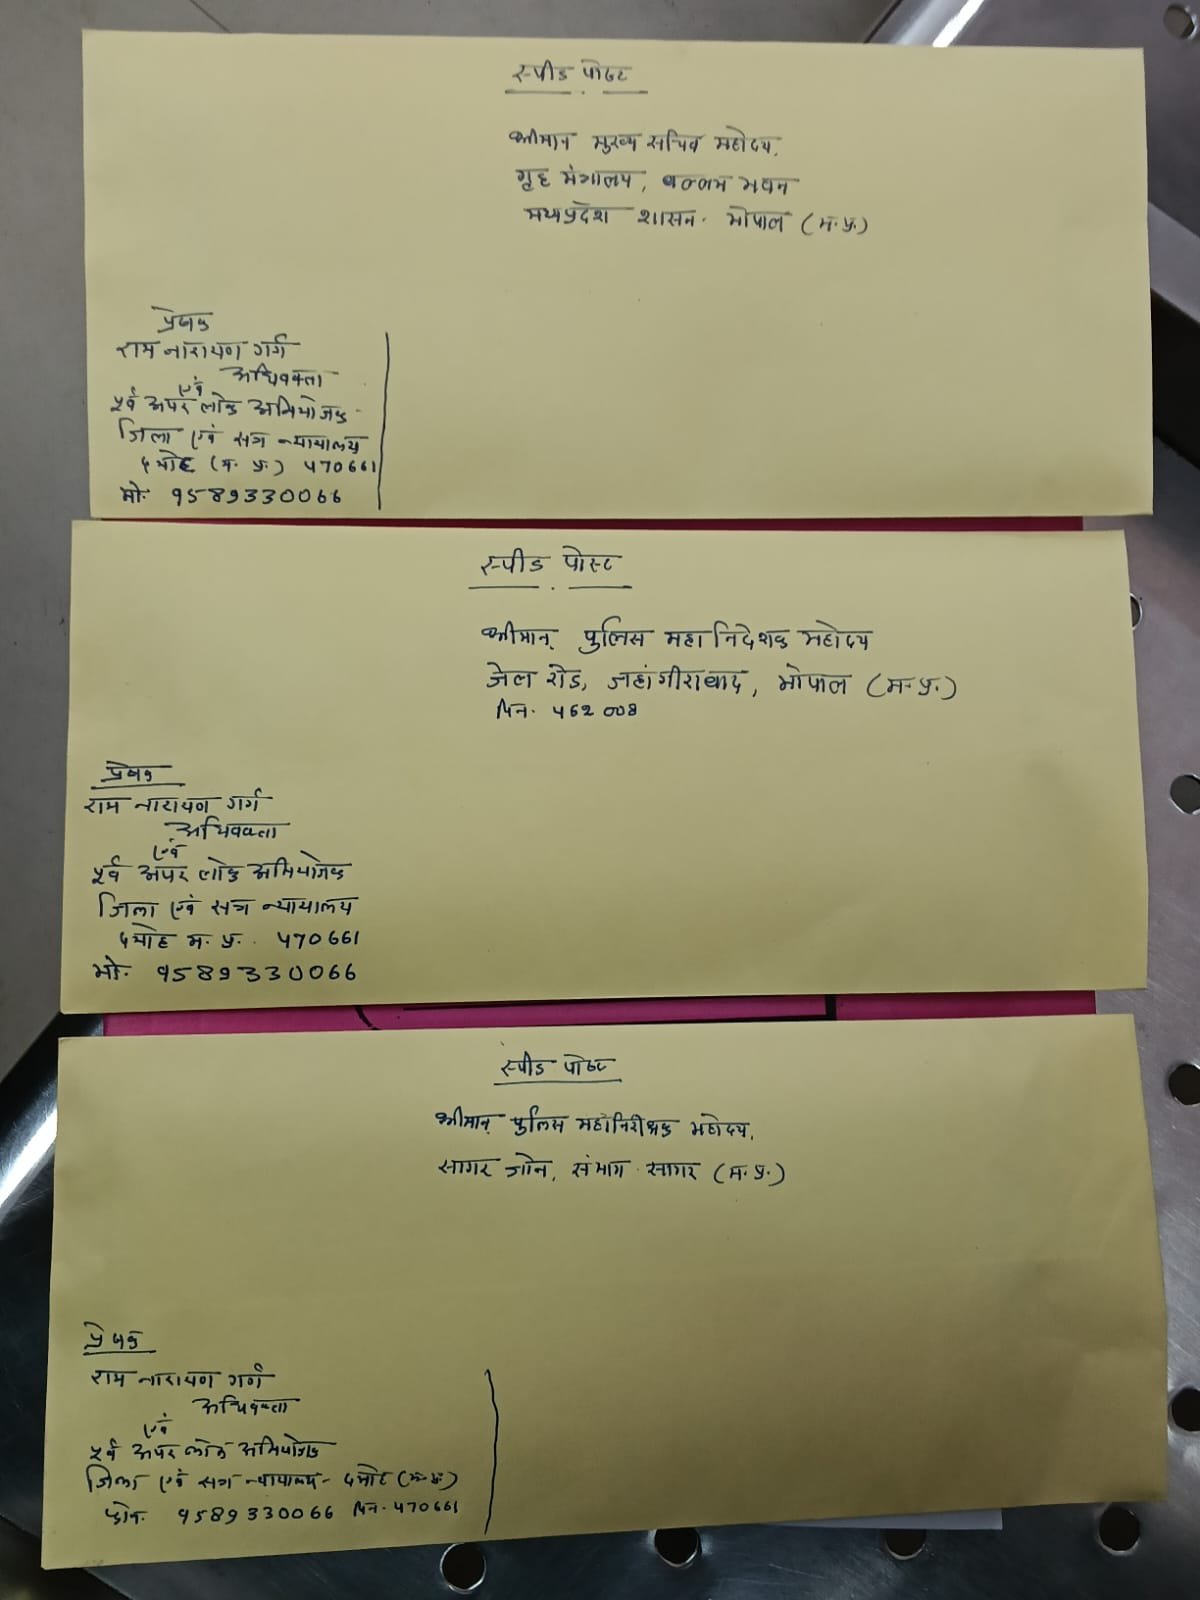 स्पीड पोस्ट
श्रीमान मुख्य सचिव महोदय,
गृह मंत्रालय, वल्लभ भवन
मध्यप्रदेश शासन. भोपाल (म.प्र.)
प्रेषक
राम नारायण गर्ग
अधिवक्ता
एवं
पूर्व अपर लोक अभियोजक
जिला एवं सत्र न्यायालय
दमोह (म. प्र.) 470661
मो. 9589330066
स्पीड पोस्ट
श्रीमान् पुलिस महानिदेशक महोदय
जेल रोड, जहांगीराबाद, भोपाल (म.प्र.)
पिन. 462008
प्रेषक
राम नारायण गर्ग
अधिवक्ता
एवं
पूर्व अपर लोक अभियोजक
जिला एवं सत्र न्यायालय
दमोह म. प्र. 470661
मो. 9589330066
स्पीड पोस्ट
श्रीमान् पुलिस महानिरीक्षक महोदय,
सागर जोन, संभाग सागर (म.प्र.)
प्रेषक
राम नारायण गर्ग
अधिवक्ता
एवं
पूर्व अपर लोक अभियोजक
जिला एवं सत्र न्यायालय - दमोह (म.प्र.)
फोन. 9589330066 पिन. 470661